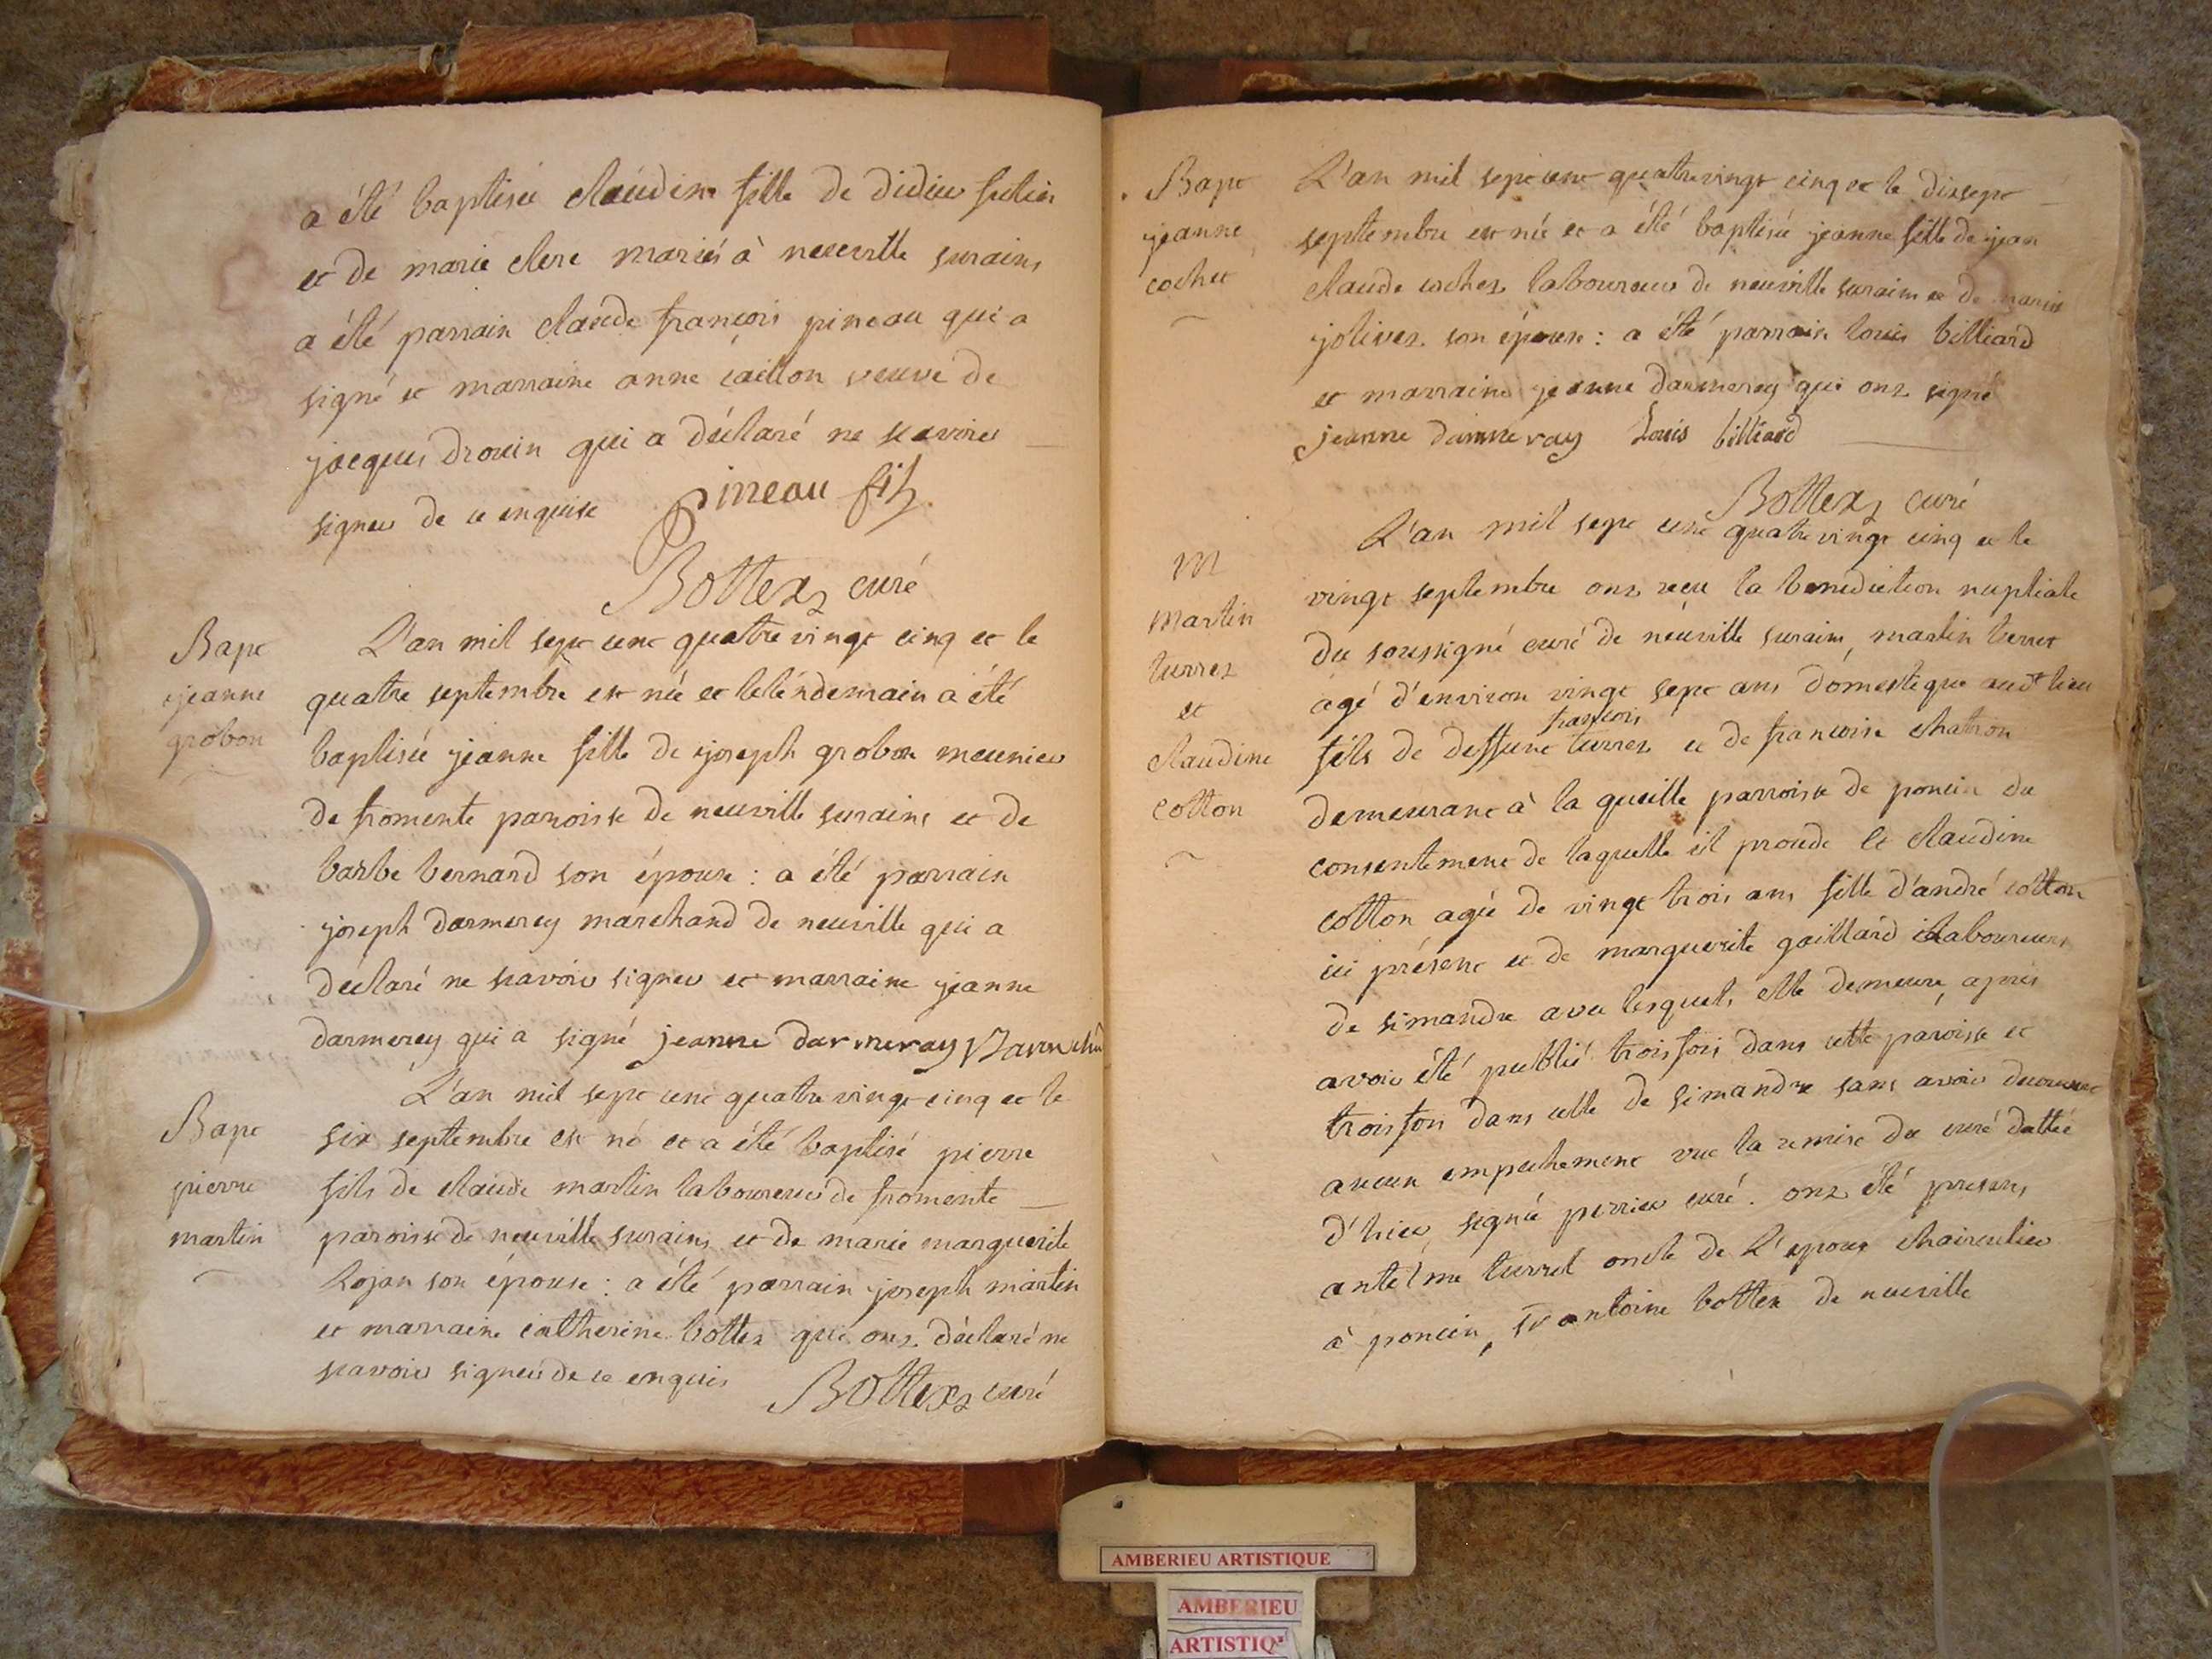 a été baptisée claudine fille de didier
et de marie clerc mariés à neuville surains
a été parrain claude françois pineau qui a
signé et marraine anne caillon veuve de
jacques drouin qui a déclaré ne scavoir
signer de ce enquise Pineau fils
Bottex curé
Bapt
jeanne
grobon
L'an mil sept cent quatre vingt cinq et le
quatre septembre est née et le lendemain a été
baptisée jeanne fille de joseph grobon meunier
de fromente paroisse de neuville surains et de
barbe bernard son épouse : a été parrain
joseph darmerey marchand de neuville qui a
déclaré ne scavoir signer et marraine jeanne
darmerey qui a signé jeanne darmeray
Bapt
pierre
martin
L'an mil sept cent quatre vingt cinq et le
six septembre est né et a été baptisé pierre
fils de claude martin laboureur de fromente
paroisse de neuville surains et de marie marguerite
Lojan son épouse : a été parrain joseph martin
et marraine catherine bottex qui ont déclaré ne
scavoir signer de ce enquis Bottex curé
Bapt
jeanne
cochet
L'an mil sept cent quatre vingt cinq et le dix sept
septembre est née et a été baptisée jeanne fille de jean
claude cochet laboureur de neuville surains et de marie
jolivet son épouse : a été parrain louis billiard
et marraine jeanne darmerey qui ont signé
jeanne darmeray Louis billiard
Bottex curé
M
martin
turret
et
claudine
cotton
L'an mil sept cent quatre vingt cinq et le
vingt septembre ont reçu la benediction nuptiale
du soussigné curé de neuville surains, martin turret
agé d'environ vingt sept ans domestique audt lieu
françois
fils de deffunt turret et de francoise chatron
demeurant à la gueille parroisse de poncin du
consentement de laquelle il procede et claudine
cotton agée de vingt trois ans fille d'andré cotton
ici présent et de marguerite gaillard laboureurs
de simandre avec lesquels elle demeure, après
avoir été publié trois fois dans cette paroisse et
trois fois dans celle de simandre sans avoir decouvert
aucun empechement vue la remise du curé dattée
d'hier signée perrier curé. ont été presens
antelme turrel oncle de l'epoux chaircutier
à poncin, sr antoine bottex de neuville
AMBERIEU ARTISTIQUE
AMBERIEU
ARTISTIQ